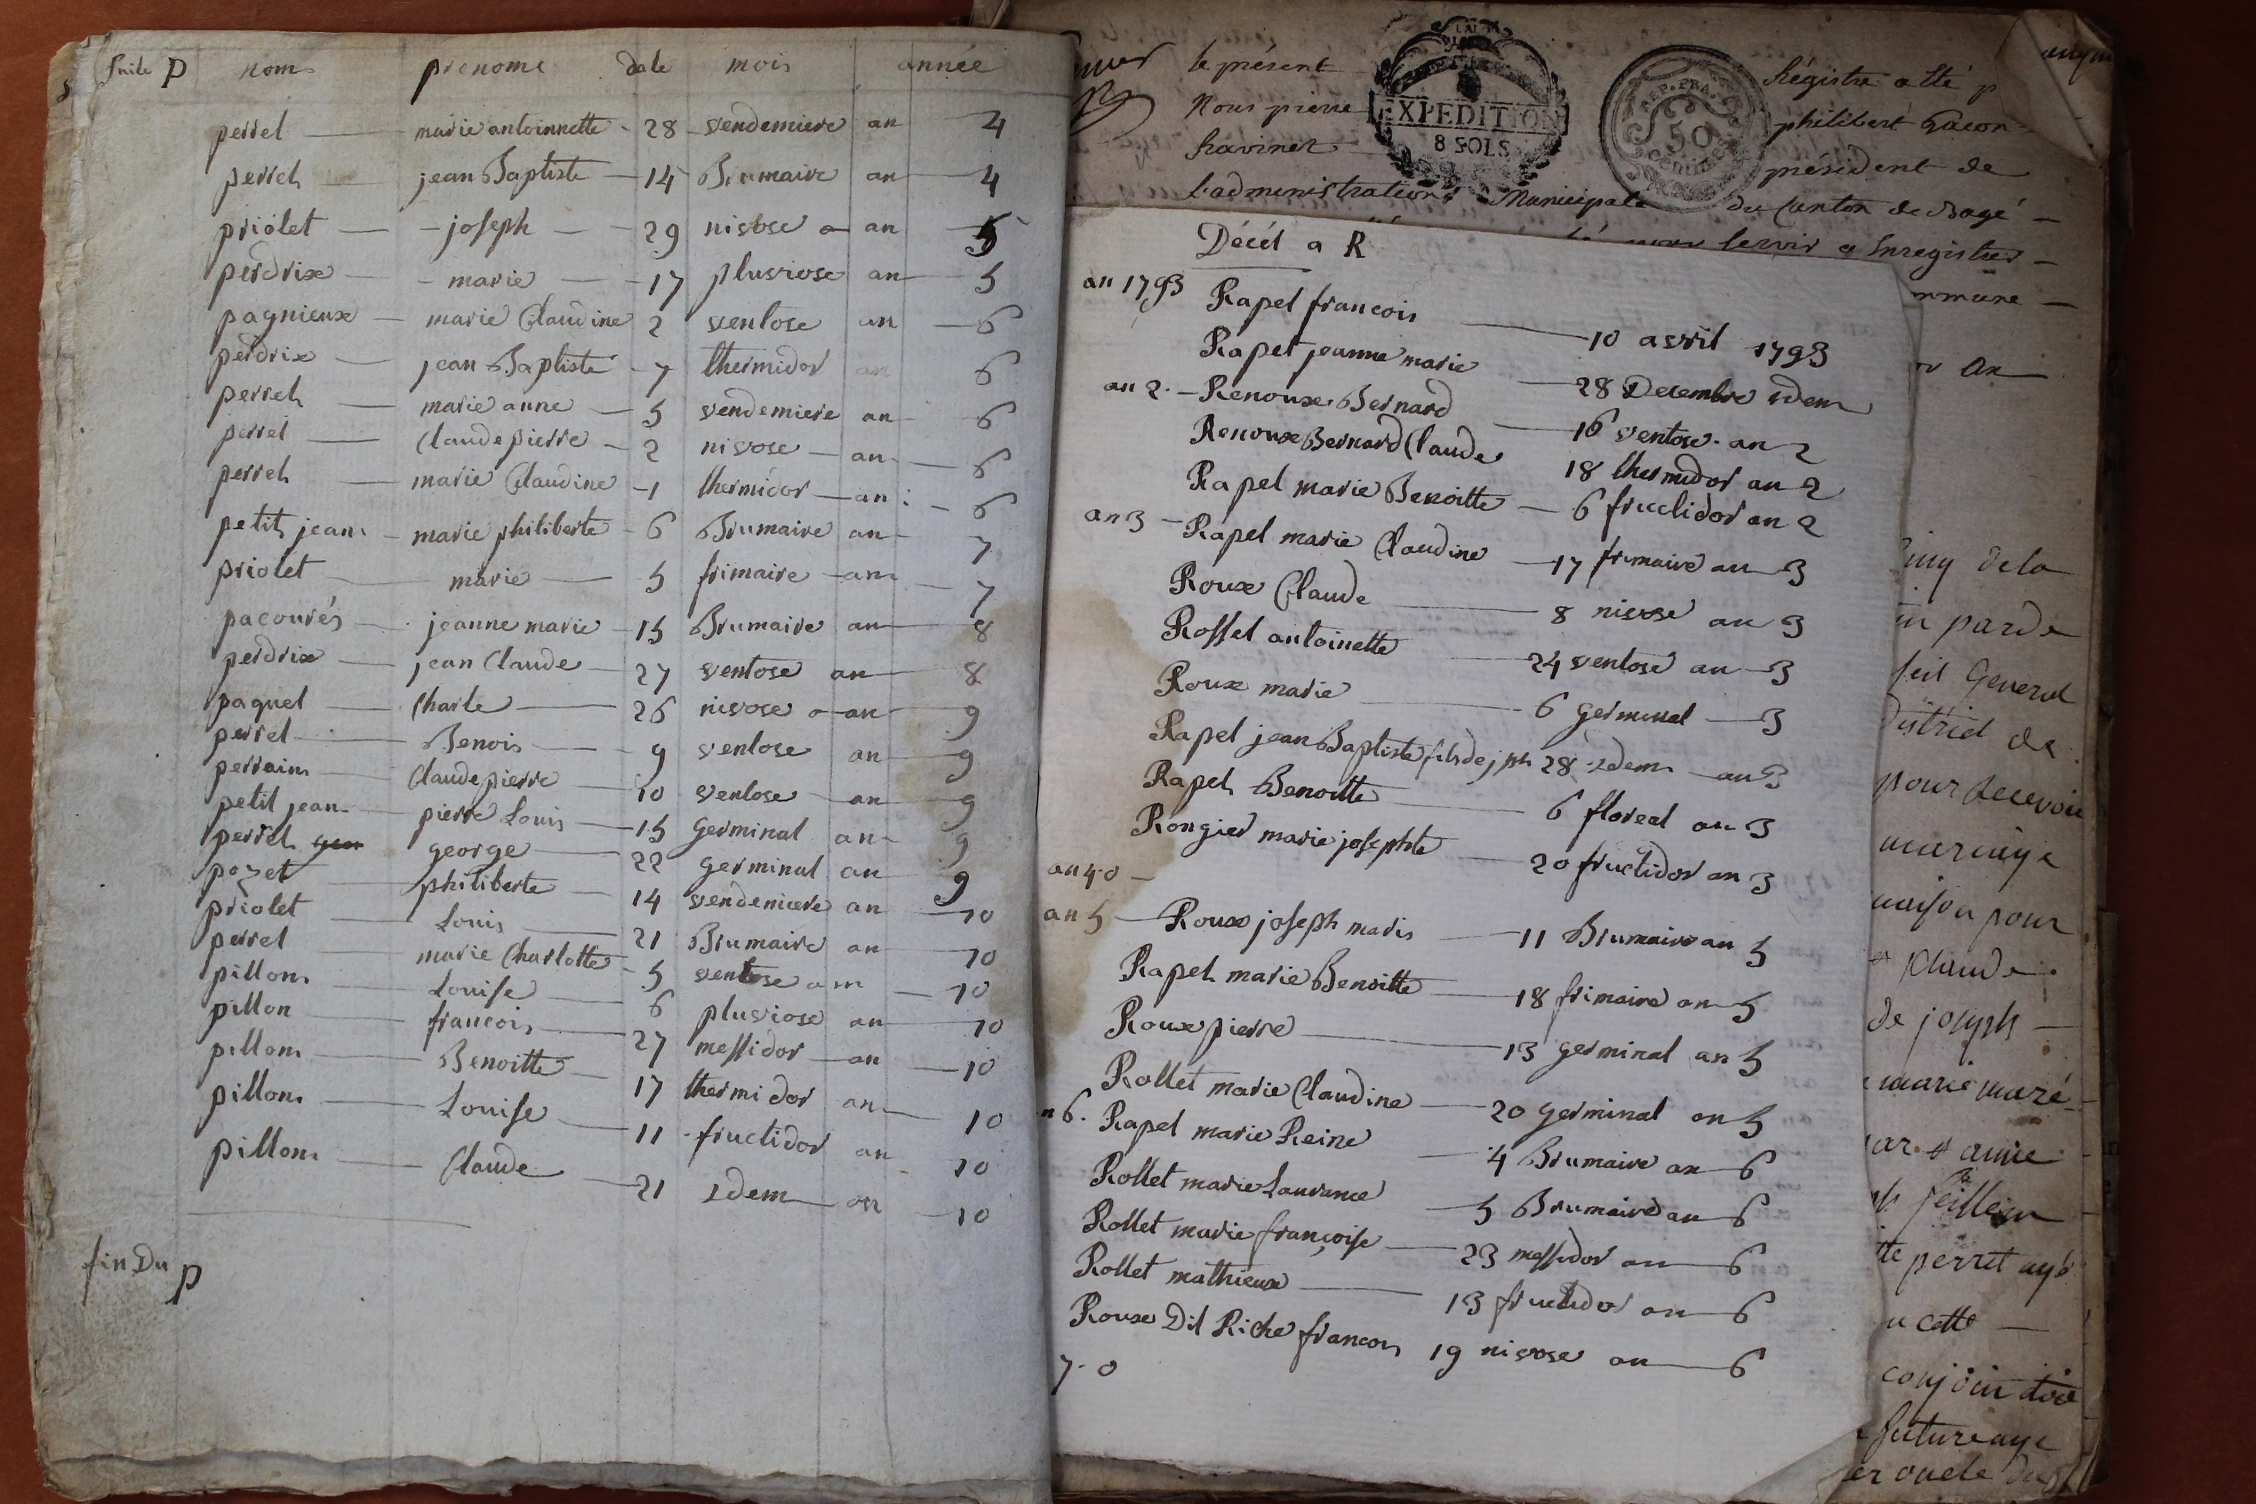 suite P nom prenome date mois année
perret marie antoinnette 28 vendemiere an 4
perret jean Baptiste 14 Brumaire an 4
priolet joseph 29 nivose an 5
perdrix marie 17 pluviose an 5
pagnieux marie Claudine 2 ventose an 6
perdrix jean Baptiste 7 thermidor an 6
perret marie anne 5 vendemiere an 6
perret Claude pierre 2 nivose an 6
perret marie Claudine 1 thermidor an 6
petit jean marie philiberte 6 Brumaire an 7
priolet marie 5 frimaire an 7
pacourés jeanne marie 15 Brumaire an 8
perdrix jean Claude 27 ventose an 8
paquet Charle 26 nivose an 9
perret Benois 9 ventose an 9
perrain Claude pierre 10 ventose an 9
petit jean pierre Louis 15 Germinal an 9
perret george 22 germinal an 9
pozet philiberte 14 vendemiere an 10
priolet Louis 21 Brumaire an 10
perret marie Charlotte 5 ventose an 10
pillon Louise 6 pluviose an 10
pillon francois 27 messidor an 10
pillon Benoitte 17 thermidor an 10
pillon Louise 11 fructidor an 10
pillon Claude 21 idem an 10
fin Du P
le présent Régistre a été p
Nous pierre philibert Gacon
président de
L'administration Municipale du Canton de Bagé
servir a Enregistrer
EXPEDITION
8 SOLS
REP. FRA.
50
Décét a R
an 1793 Rapet francois 10 avril 1793
Rapet jeanne marie 28 Decembre idem
an 2 Renoux Bernard 16 ventose an 2
Renoux Bernard Claude 18 thermidor an 2
Rapet marie Benoitte 6 fructidor an 2
an 3 Rapet marie Claudine 17 frimaire an 3
Roux Claude 8 nivose an 3
Rosset antoinette 24 ventose an 3
Roux marie 6 germinal 3
Rapet jean Baptiste fils de jph 28 idem an 3
Rapet Benoitte 6 floreal an 3
Rongier marie josephte 20 fructidor an 3
an 4 0
an 5 Roux joseph maris 11 Brumaire an 5
Rapet marie Benoitte 18 frimaire an 5
Roux pierre 13 germinal an 5
Rollet marie Claudine 20 germinal an 5
n 6. Rapet marie Reine 4 Brumaire an 6
Rollet marie Laurance 5 Brumaire an 6
Rollet marie françoise 23 messidor an 6
Rollet mathieux 13 fructidor an 6
Roux Dit Riche francois 19 nivose an 6
7. 0
an
de la
parde
General
District de
pour recevoir
mariage
maison pour
Claude
de joseph
marie
anne
perret agé
cette
conjoin
future age